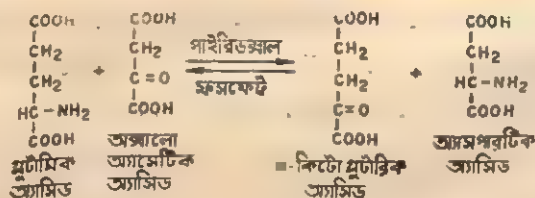 COOH
CH₂
CH₂
HC-NH₂
COOH
গ্লুটামিক
অ্যাসিড
+
COOH
CH₂
C=O
COOH
অক্সালো
অ্যাসেটিক
অ্যাসিড
পাইরিডক্সাল
ফসফেট
COOH
CH₂
CH₂
C=O
COOH
-কিটো গ্লুটারিক
অ্যাসিড
+
COOH
CH₂
HC-NH₂
COOH
অ্যাসপারটিক
অ্যাসিড